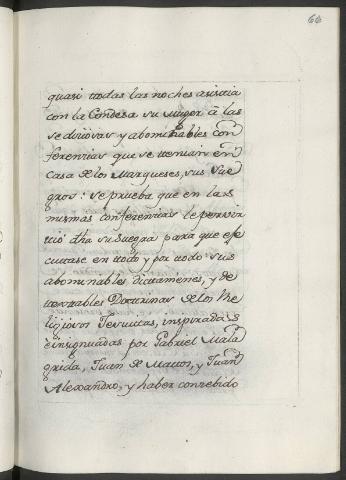 66
quasi todas las noches asistia
con la Condesa su Muger â las
sediciosas y abominables con
ferencias que se tenian en
casa de los Marqueses, sus Sue
gros: se prueba que en las
mismas conferencias le persua
dió dha su Suegra para que exe
cutase en todo y por todo sus
abominables dictamenes, y de
testables Doctrinas de los Re
ligiosos Jesuitas, inspiradas
è insignuadas por Gabriel Mala
grida, Juan de Mattos, y Juan
Alexandro, y haber concebido